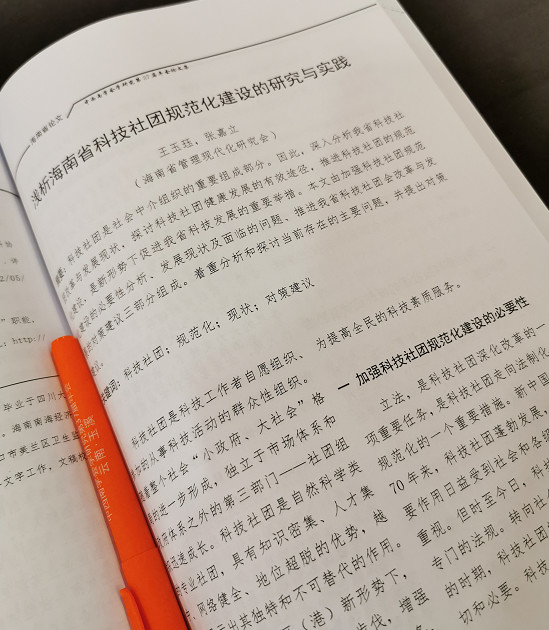 海南省论文
浅析海南省科技社团规范化建设的研究与实践
王玉珏，张嘉立
（海南省管理现代化研究会）
科技社团是社会中介组织的重要组成部分。因此，深入分析我省科技社
改革与发展现状，探讨科技社团健康发展的有效途径，推进科技社团的规范
建设，是新形势下促进我省科技发展的重要举措。本文由加强科技社团规范
建设的必要性分析、发展现状及面临的问题、推进我省科技社团会改革与发
的对策建议三部分组成。着重分析和探讨当前存在的主要问题，并提出对策
科技社团；规范化；现状；对策建议
科技社团是科技工作者自愿组织、
加的从事科技活动的群众性组织。
着整个社会“小政府、大社会”格
的进一步形成，独立于市场体系和
体系之外的第三部门——社团组
迅速成长。科技社团是自然科学类
专业社团，具有知识密集、人才集
网络健全、地位超脱的优势，越
示出其独特和不可替代的作用。
（港）新形势下，
步伐，增强
为提高全民的科技素质服务。
一 加强科技社团规范化建设的必要性
立法，是科技社团深化改革的一
项重要任务，是科技社团走向法制化
规范化的一个重要措施。新中国
70 年来，科技社团蓬勃发展，
要作用日益受到社会和各
重视。但时至今日，科
专门的法规。转向社
的时期，科技社团
切和必要。科技
2/05/
职称。
http://
毕业于四川大
海南南海经济
口市美兰区卫生
文字工作，文稿
云南·玉溪